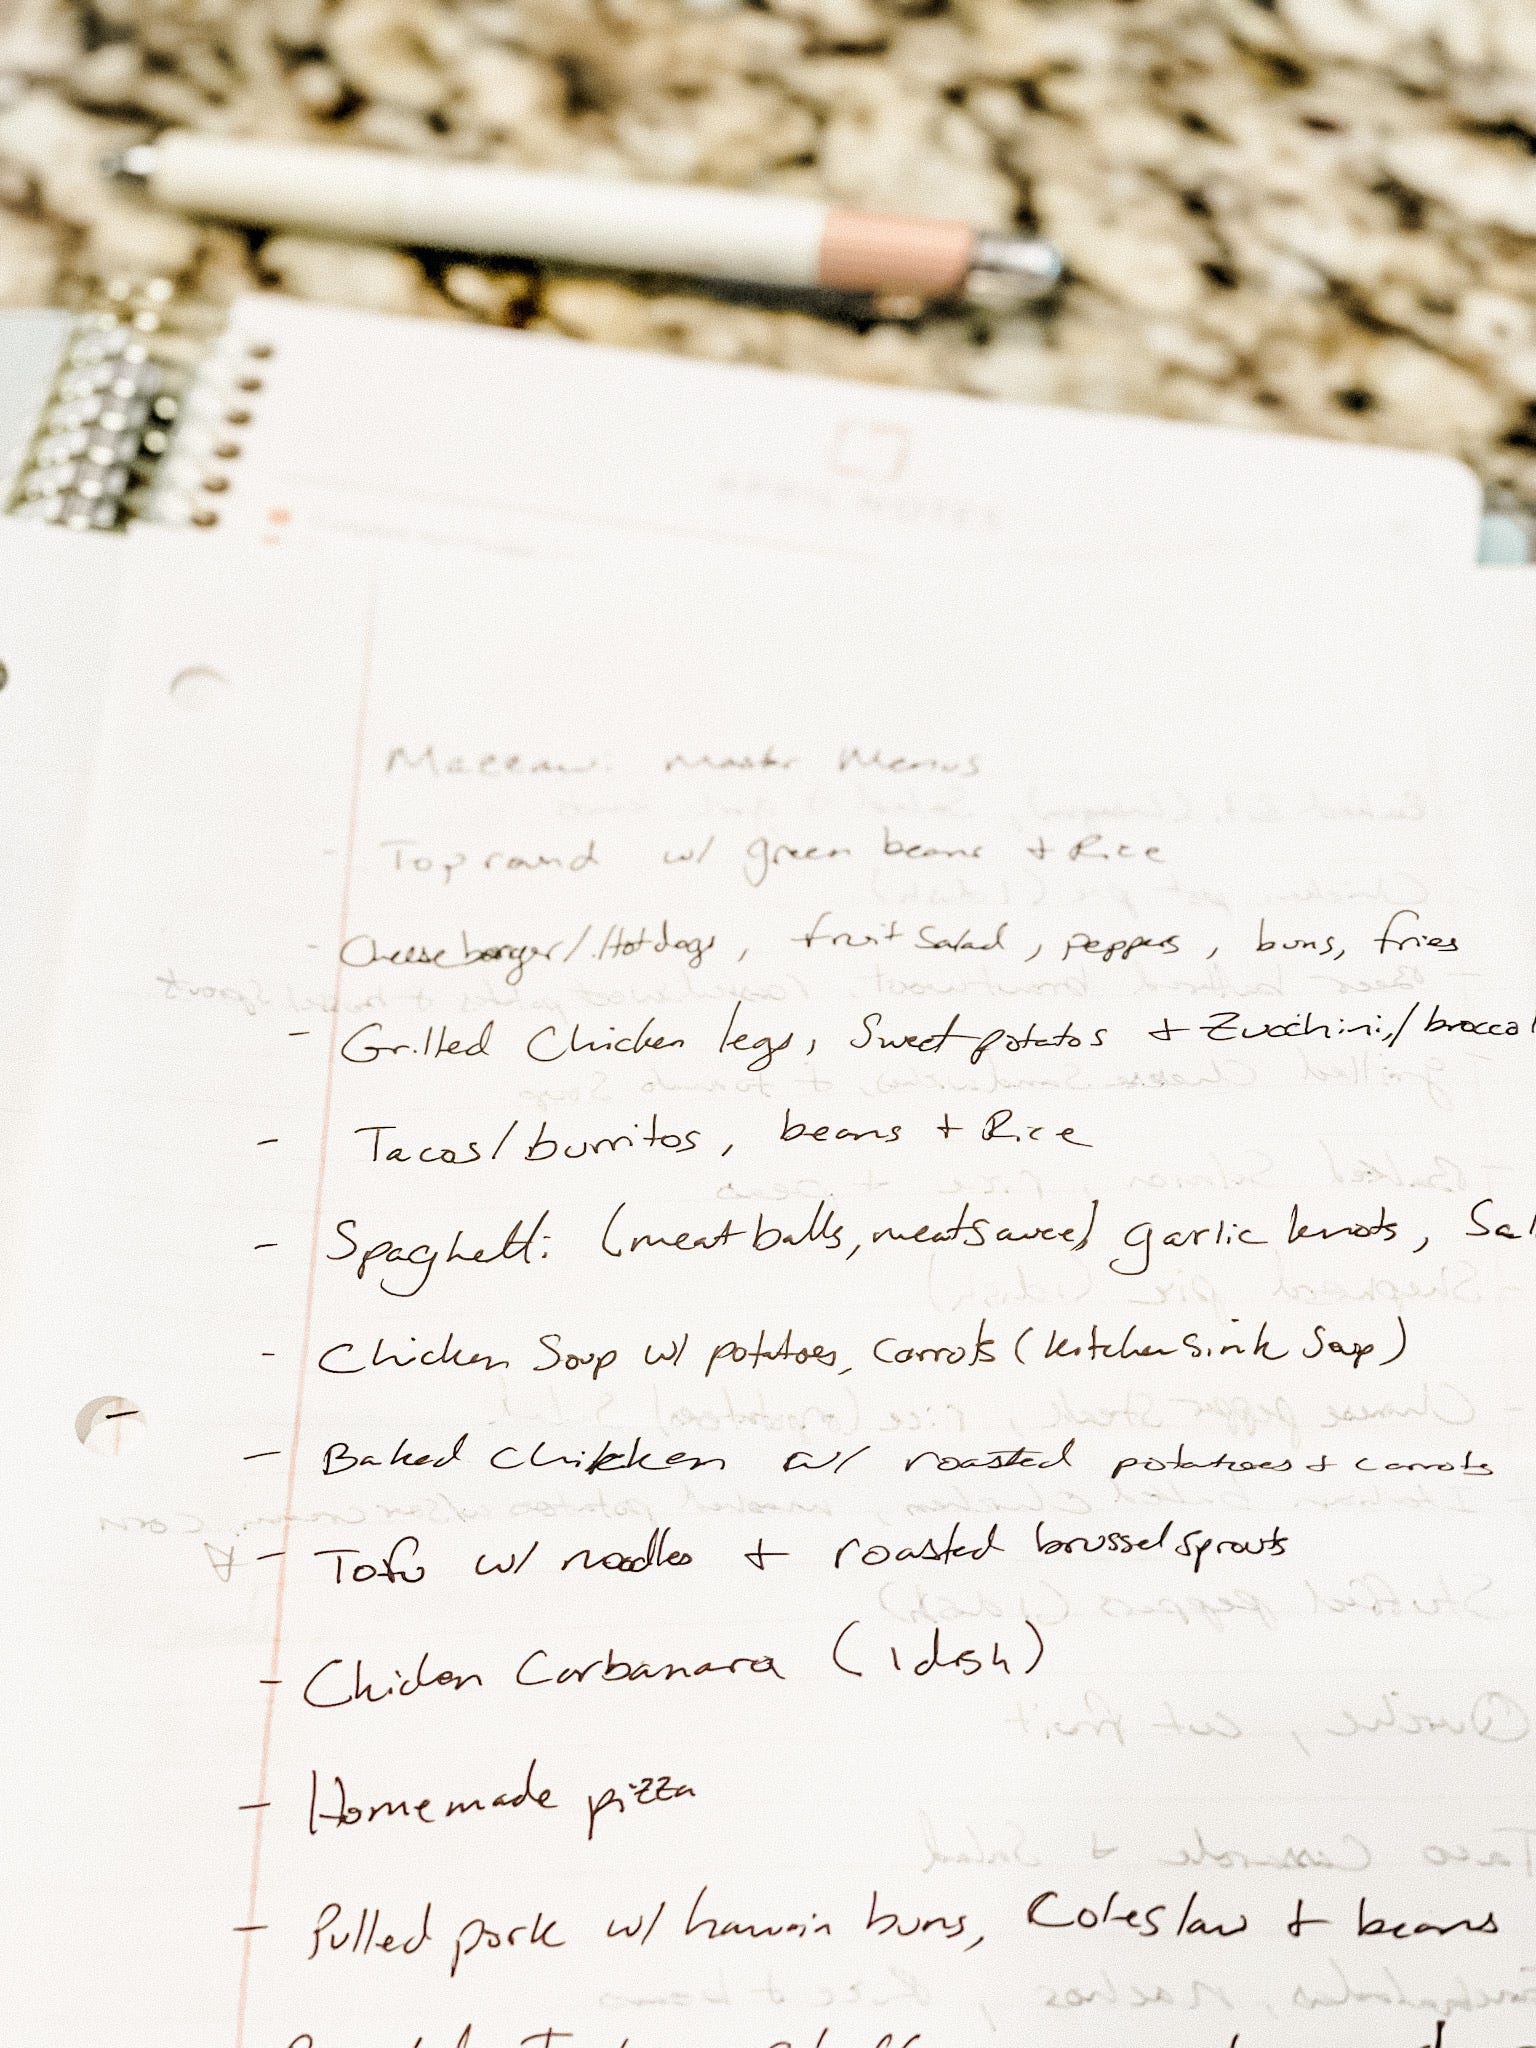 Master Menus
- Top round w/ green beans + Rice
- Cheeseborger/Hotdogs, fruit Salad, peppers, buns, fries
- Grilled Chicken legs, Sweet potatos + Zucchini,/broccol
- Tacos/burritos, beans + Rice
- Spaghetti: (meatballs, meatsauce) garlic knots, Sal
- Chicken Soup w/ potatoes, carrots (kitchen Sink Soup)
- Baked chikken w/ roasted potatoes + carrots
- Tofu w/ noodles + roasted brussel sprouts
- Chicken Carbanara (1 dish)
- Homemade pizza
- Pulled pork w/ hawain buns, Coleslaw + beans